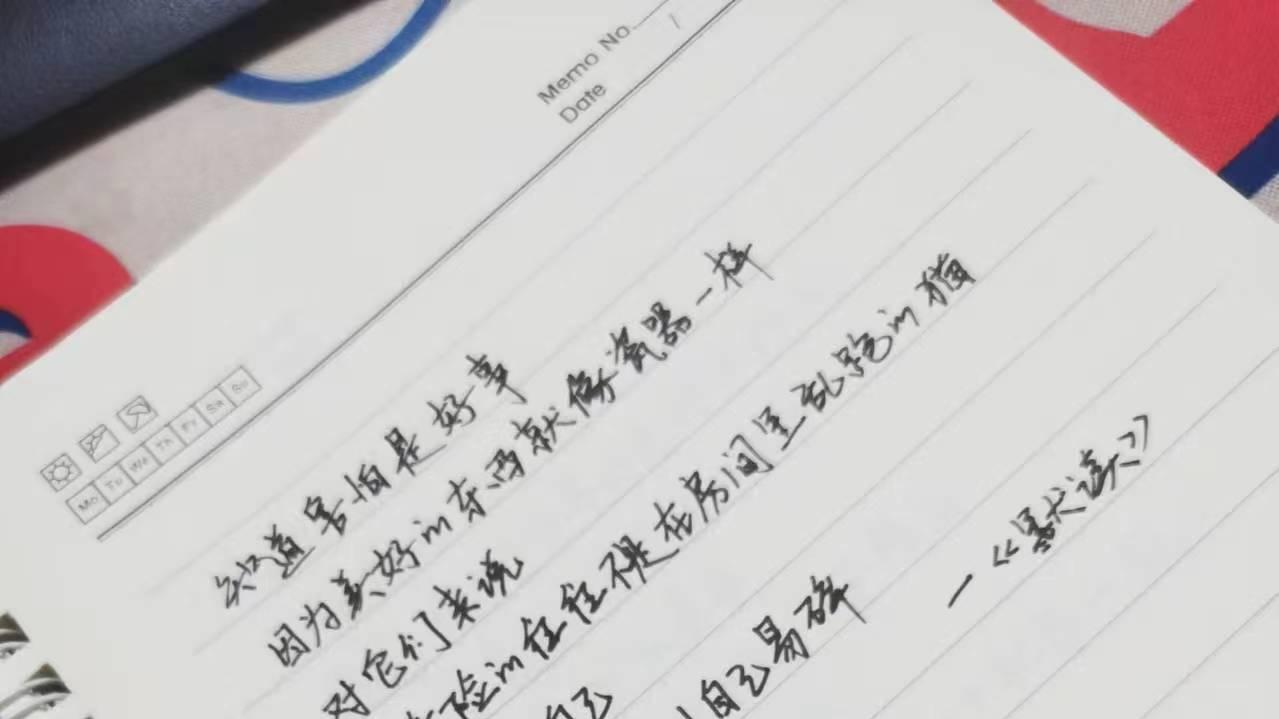 Memo No.
Date /
Mo Tu We Th Fr Sa Su
知道害怕是好事
因为美好的东西就像瓷器一样
对它们来说
险的往往不是在房间里乱跑的猫
自己
自己易碎
—《默读》